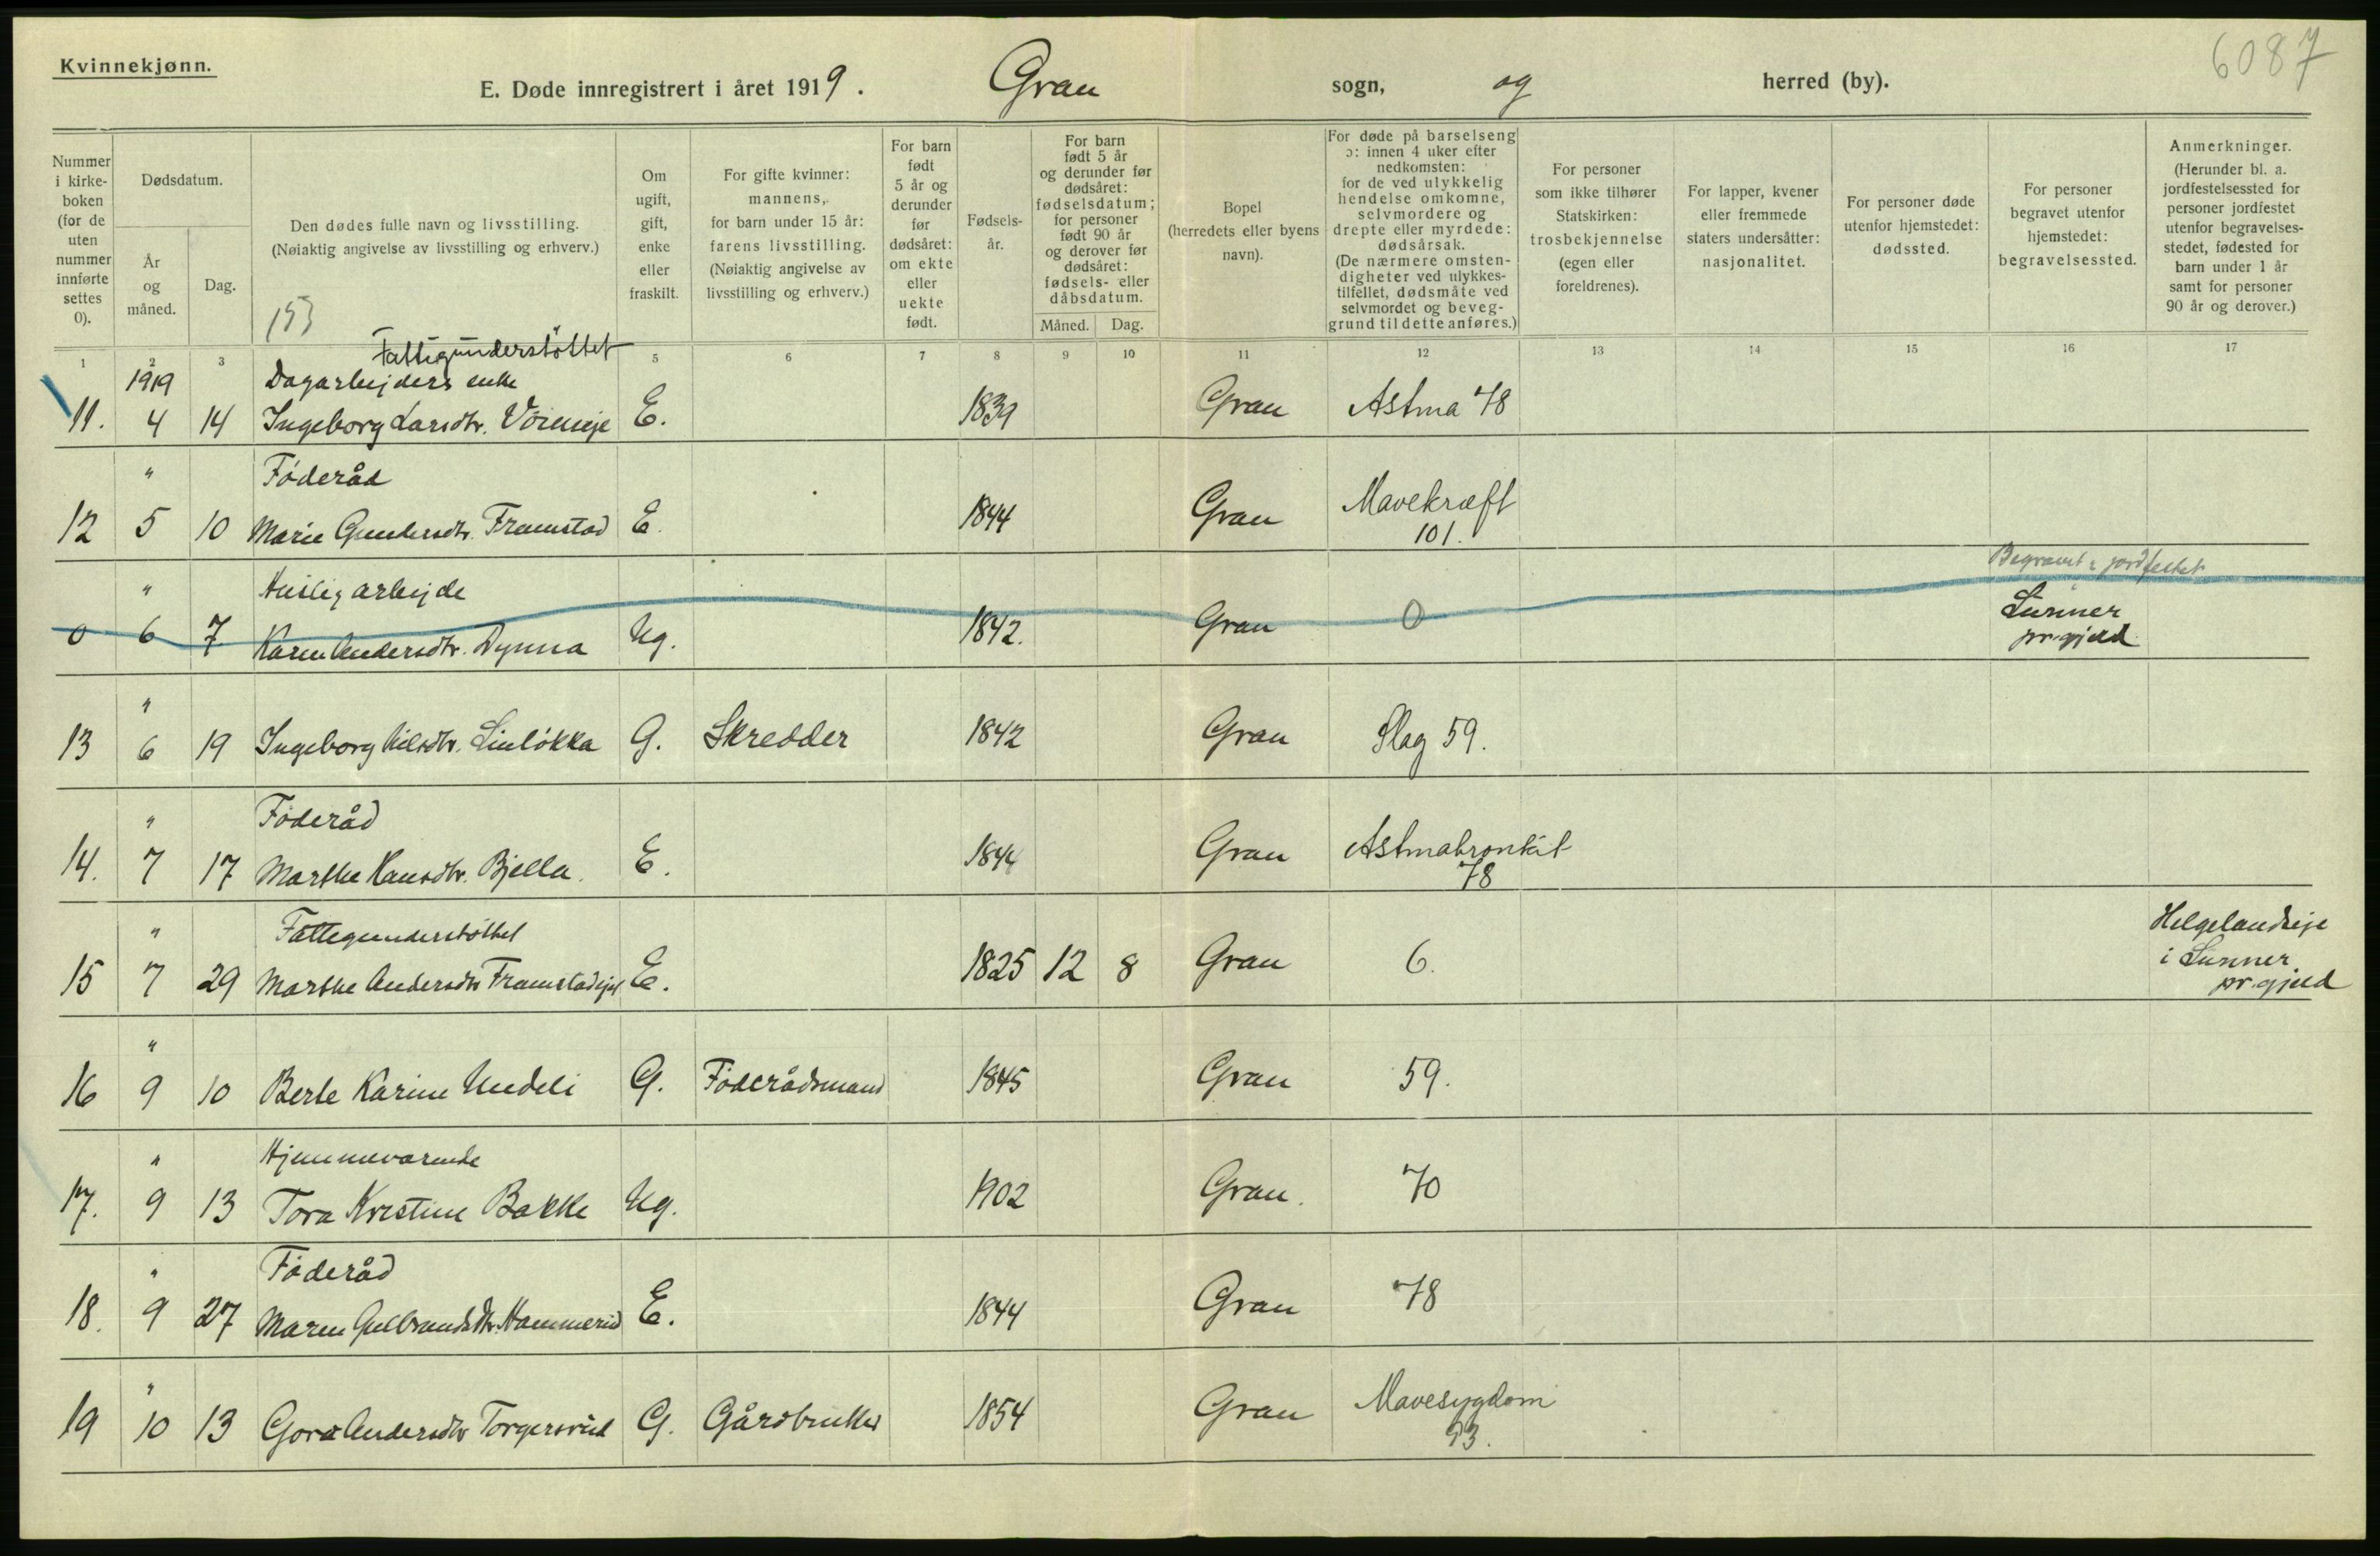 Kvinnekjønn.
6087
E. Døde innregistrert i året 1919. Gran sogn, og herred (by).
Nummer i kirke-boken (for de uten nummer innførte settes 0).
Dødsdatum.
År og måned.
Dag.
Den dødes fulle navn og livsstilling.
(Nøiaktig angivelse av livsstilling og erhverv.)
153
Om ugift, gift, enke eller fraskilt.
For gifte kvinner: mannens, for barn under 15 år: farens livsstilling. (Nøiaktig angivelse av livsstilling og erhverv.)
For barn født 5 år og derunder før dødsåret: om ekte eller uekte født.
Fødsels-år.
For barn født 5 år og derunder før dødsåret: fødselsdatum; for personer født 90 år og derover før dødsåret: fødsels- eller dåbsdatum.
Måned. Dag.
Bopel (herredets eller byens navn).
For døde på barselseng ɔ: innen 4 uker efter nedkomsten: for de ved ulykkelig hendelse omkomne, selvmordere og drepte eller myrdede: dødsårsak. (De nærmere omsten-digheter ved ulykkes-tilfellet, dødsmåte ved selvmordet og beveg-grund til dette anføres.)
For personer som ikke tilhører Statskirken: trosbekjennelse (egen eller foreldrenes).
For lapper, kvener eller fremmede staters undersåtter: nasjonalitet.
For personer døde utenfor hjemstedet: dødssted.
For personer begravet utenfor hjemstedet: begravelsessted.
Anmerkninger. (Herunder bl. a. jordfestelsessted for personer jordfestet utenfor begravelses-stedet, fødested for barn under 1 år samt for personer 90 år og derover.)
1 2 3 5 6 7 8 9 10 11 12 13 14 15 16 17
Fattigunderstöttet
1919 Dagarbejders enke
11. 4 14 Ingeborg Larsdtr. E. 1839 Gran Astma 78
" Föderåd
12 5 10 Marie Gundersdtr. Framstad E. 1844 Gran Mavekræft
101.
Begravet & jordfestet
" Huslig arbejde
0 6 7 Karen Andersdtr. Dynna Ug. 1842. Gran 0 Lunner
pr.gjeld
"
13 6 19 Ingeborg Nilsdtr. Linlökka G. Skredder 1842 Gran Slag 59.
" Föderåd
14. 7 17 Marthe Hansdtr. Bjella. E. 1844 Gran Astmabronkit
78
" Fattigunderstöttet
15 7 29 Marthe Andersdtr Framstadejet E. 1825 12 8 Gran 6. Helgelandseje
i Lunner
pr.gjeld
"
16 9 10 Berte Karine Undeli G. Föderådsmand 1845 Gran 59.
" Hjemmeværende
17. 9 13 Tora Kristine Bakke Ug. 1902 Gran. 70
" Föderåd
18. 9 27 Maren Gulbrandsdtr. Hammerud E. 1844 Gran 78
"
19 10 13 Goro Andersdtr Torgersrud G. Gårdbruker 1854 Gran Mavesygdom
93.